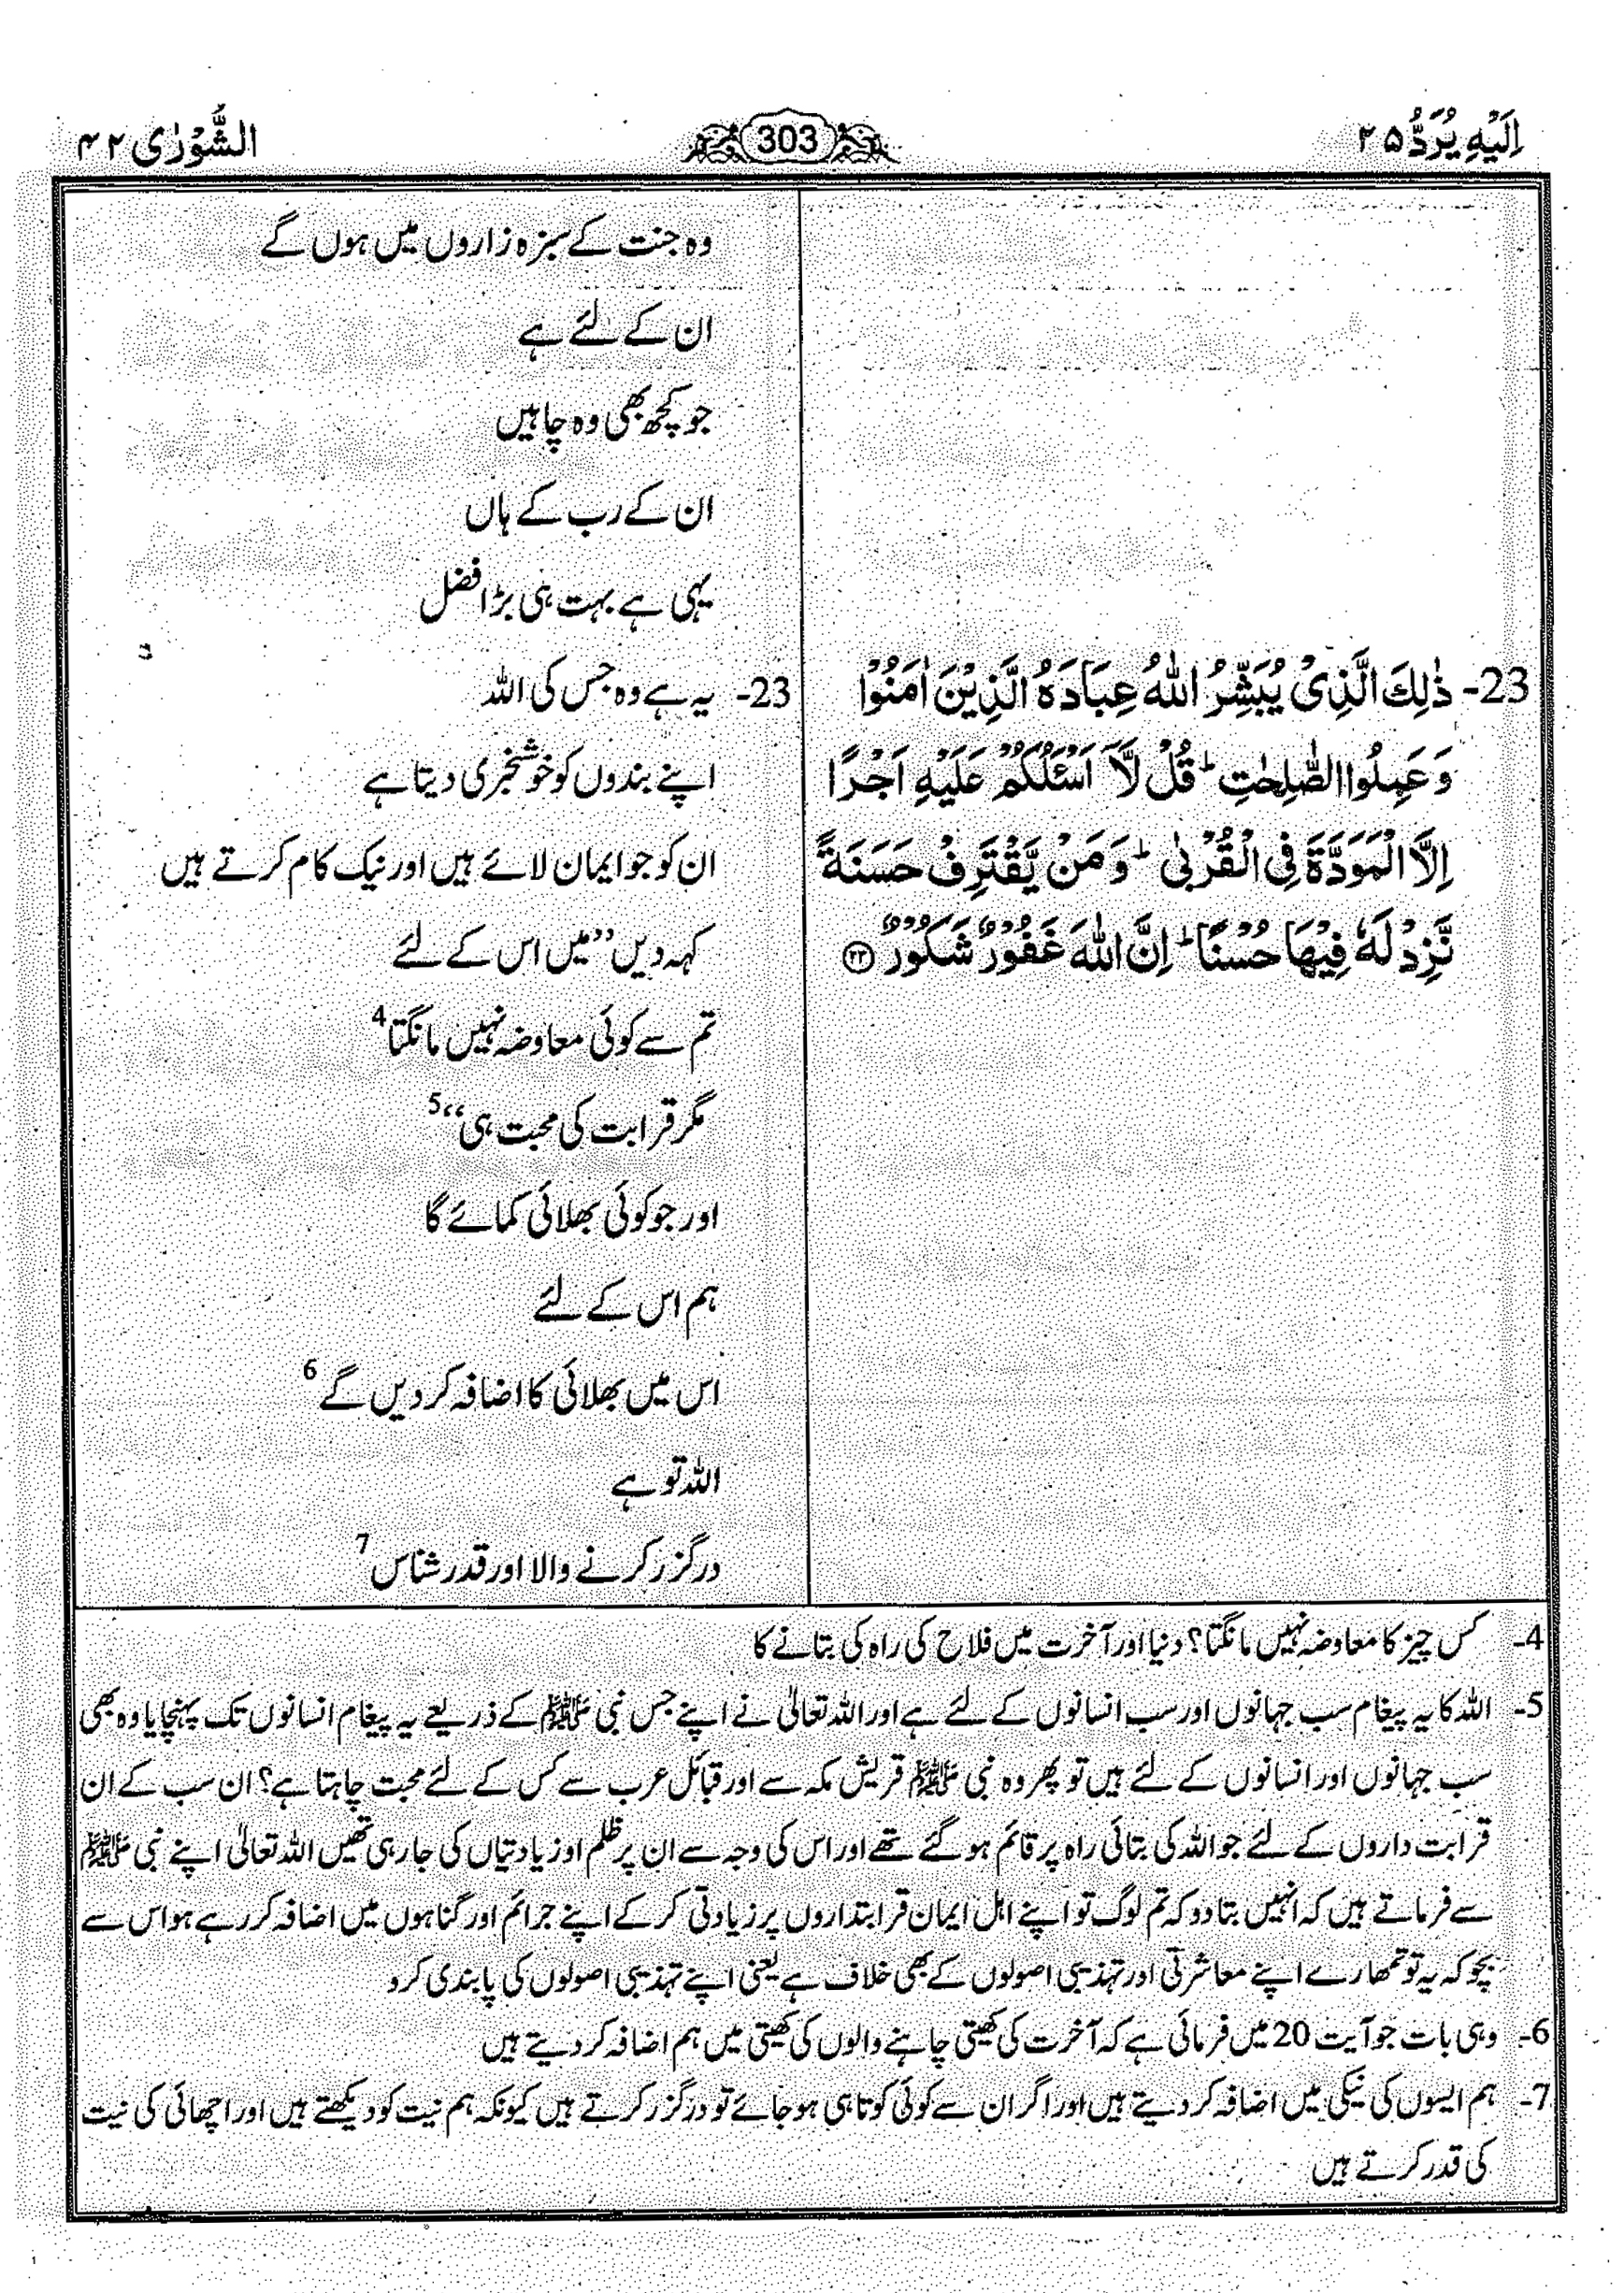 اِلَیْهِ یُرَدُّ ۲۵
303
الشُّوْرٰی ۴۲
وہ جنت کے سبزہ زاروں میں ہوں گے
ان کے لئے ہے
جو کچھ بھی وہ چاہیں
ان کے رب کے ہاں
یہی ہے بہت ہی بڑا فضل
23- ذٰلِكَ الَّذِیْ یُبَشِّرُ اللّٰهُ عِبَادَهُ الَّذِیْنَ اٰمَنُوْا
وَعَمِلُوا الصّٰلِحٰتِ ؕ قُلْ لَّاۤ اَسْـَٔلُكُمْ عَلَیْهِ اَجْرًا
اِلَّا الْمَوَدَّةَ فِی الْقُرْبٰی ؕ وَمَنْ یَّقْتَرِفْ حَسَنَةً
نَّزِدْ لَهٗ فِیْهَا حُسْنًا ؕ اِنَّ اللّٰهَ غَفُوْرٌ شَكُوْرٌ ﴿۲۳﴾
23- یہ ہے وہ جس کی اللہ
اپنے بندوں کو خوشخبری دیتا ہے
ان کو جو ایمان لائے ہیں اور نیک کام کرتے ہیں
کہہ دیں ’’میں اس کے لئے
تم سے کوئی معاوضہ نہیں مانگتا 4
مگر قرابت کی محبت ہی‘‘ 5
اور جو کوئی بھلائی کمائے گا
ہم اس کے لئے
اس میں بھلائی کا اضافہ کر دیں گے 6
اللہ تو ہے
درگزر کرنے والا اور قدر شناس 7
4- کس چیز کا معاوضہ نہیں مانگتا؟ دنیا اور آخرت میں فلاح کی راہ کی بتانے کا
5- اللہ کا یہ پیغام سب جہانوں اور سب انسانوں کے لئے ہے اور اللہ تعالٰی نے اپنے جس نبی ﷺ کے ذریعے یہ پیغام انسانوں تک پہنچایا وہ بھی
سب جہانوں اور انسانوں کے لئے ہیں تو پھر وہ نبی ﷺ قریش مکہ سے اور قبائل عرب سے کس کے لئے محبت چاہتا ہے؟ ان سب کے ان
قرابت داروں کے لئے جو اللہ کی بتائی راہ پر قائم ہو گئے تھے اور اس کی وجہ سے ان پر ظلم اور زیادتیاں کی جا رہی تھیں اللہ تعالٰی اپنے نبی ﷺ
سے فرماتے ہیں کہ انہیں بتا دو کہ تم لوگ تو اپنے اہل ایمان قرابتداروں پر زیادتی کر کے اپنے جرائم اور گناہوں میں اضافہ کر رہے ہو اس سے
بچو کہ یہ تو تمھارے اپنے معاشرتی اور تہذیبی اصولوں کے بھی خلاف ہے یعنی اپنے تہذیبی اصولوں کی پابندی کرو
6- وہی بات جو آیت 20 میں فرمائی ہے کہ آخرت کی کھیتی چاہنے والوں کی کھیتی میں ہم اضافہ کر دیتے ہیں
7- ہم ایسوں کی نیکی میں اضافہ کر دیتے ہیں اور اگر ان سے کوئی کوتاہی ہو جائے تو درگزر کرتے ہیں کیونکہ ہم نیت کو دیکھتے ہیں اور اچھائی کی نیت
کی قدر کرتے ہیں